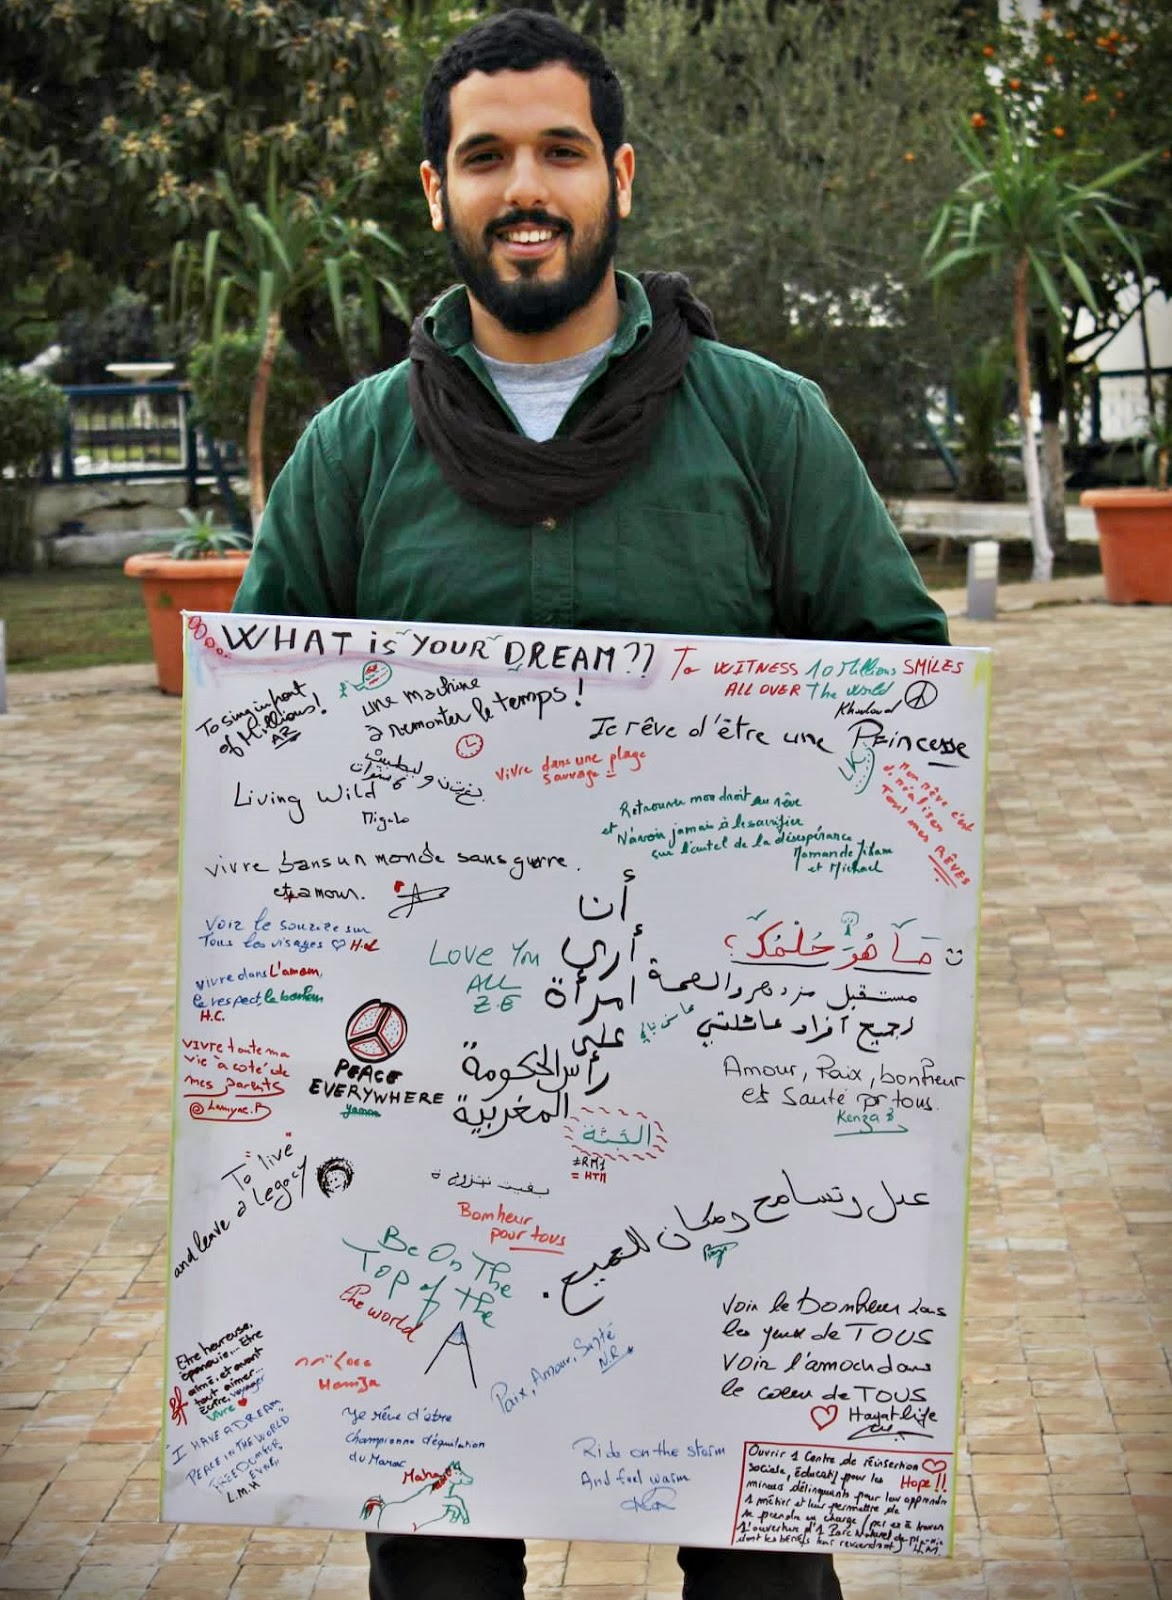 WHAT is YOUR DREAM??
To WITNESS 10 Millions SMILES
ALL OVER The World
Khuloud
To sing in front
of Millions!
AZ
une machine
à remonter le temps!
Je rêve d'être une Princesse
LK
vivre dans une plage
sauvage
Mon rêve c'est
de réaliser
Tout mes RÊVES
Living Wild
Retrouver mon droit au rêve
et N'avoir jamais à le sacrifier
sur l'autel de la désespérance
Maman de Jihane
et Michael
vivre dans un monde sans guerre.
et amour.
voir le sourire sur
Tous les visages
vivre dans L'amour,
le respect, le bonheur
H.C.
LOVE YOU
ALL
Z.E
أنا
أرى
امرأة
على
رأس الحكومة
المغربية
ما هو حلمك؟
مستقبل مزدهر و الصحة
لجميع أفراد عائلتي
vivre toute ma
vie à coté de
mes parents
PEACE
EVERYWHERE
Amour, Paix, bonheur
et Santé pr tous.
Kenza B
الجنة
= HTM
To "live"
and leave a legacy
بغيت نتزوج
Bonheur
pour tous
عدل وتسامح ومكان للجميع.
Be On The
Top of the
the world
voir le bonheur dans
les yeux de TOUS
voir l'amour dans
le coeur de TOUS
Hayat life
Etre heureuse,
épanouie,... Etre
aimé. et avant
tout aimer...
Ecrire, voyager
Vivre
Hamza
Paix, Amour, Santé
N.R
"I HAVE A DREAM"
PEACE IN THE WORLD
FREEDOM FOR
L.M.H
Je rêve d'être
championne d'équitation
du Maroc
Maha
Ride on the storm
And feel warm
Ouvrir 1 Centre de réinsertion
sociale, éducatif pour les
Hope!!
mineurs délinquants pour leur apprendre
1 métier et leur permettre de
se prendre en charge
l'ouverture d'1 Parc Naturel
dont les bénéfs leur reviendront